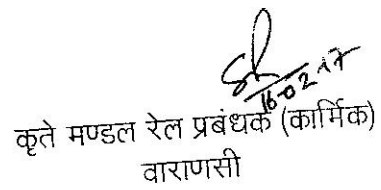 16-02-17
कृते मण्डल रेल प्रबंधक (कार्मिक)
वाराणसी